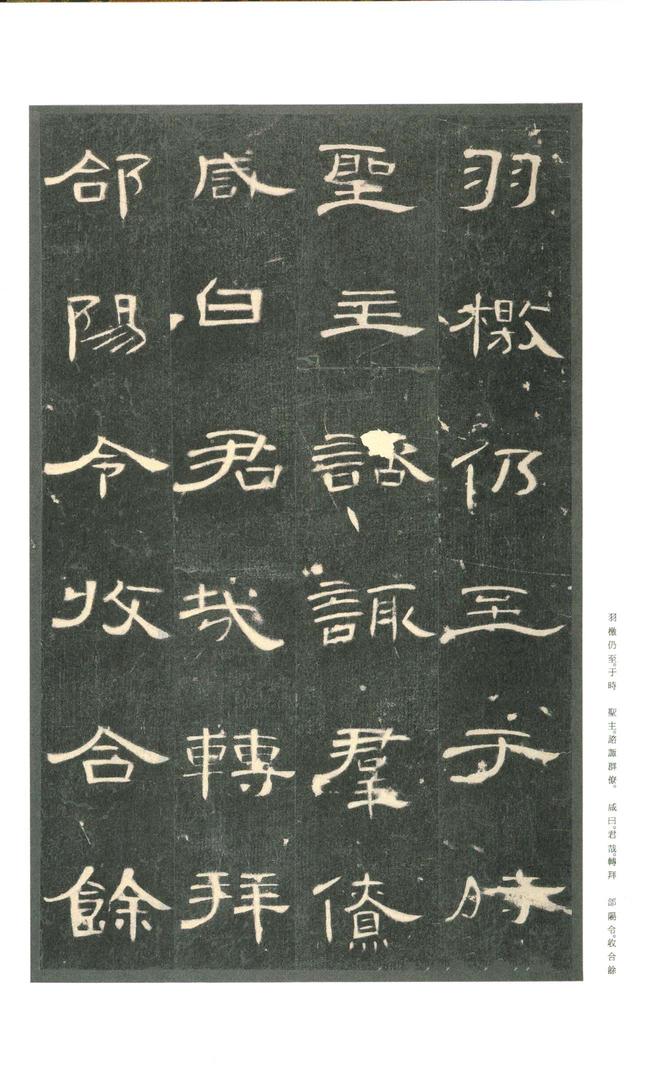 羽檄仍至于時
聖主諮諏羣僚
咸曰君哉轉拜
郃陽令收合餘
羽檄仍至。于時 聖主。諮諏群僚。 咸曰。君哉。轉拜 郃陽令。收合餘